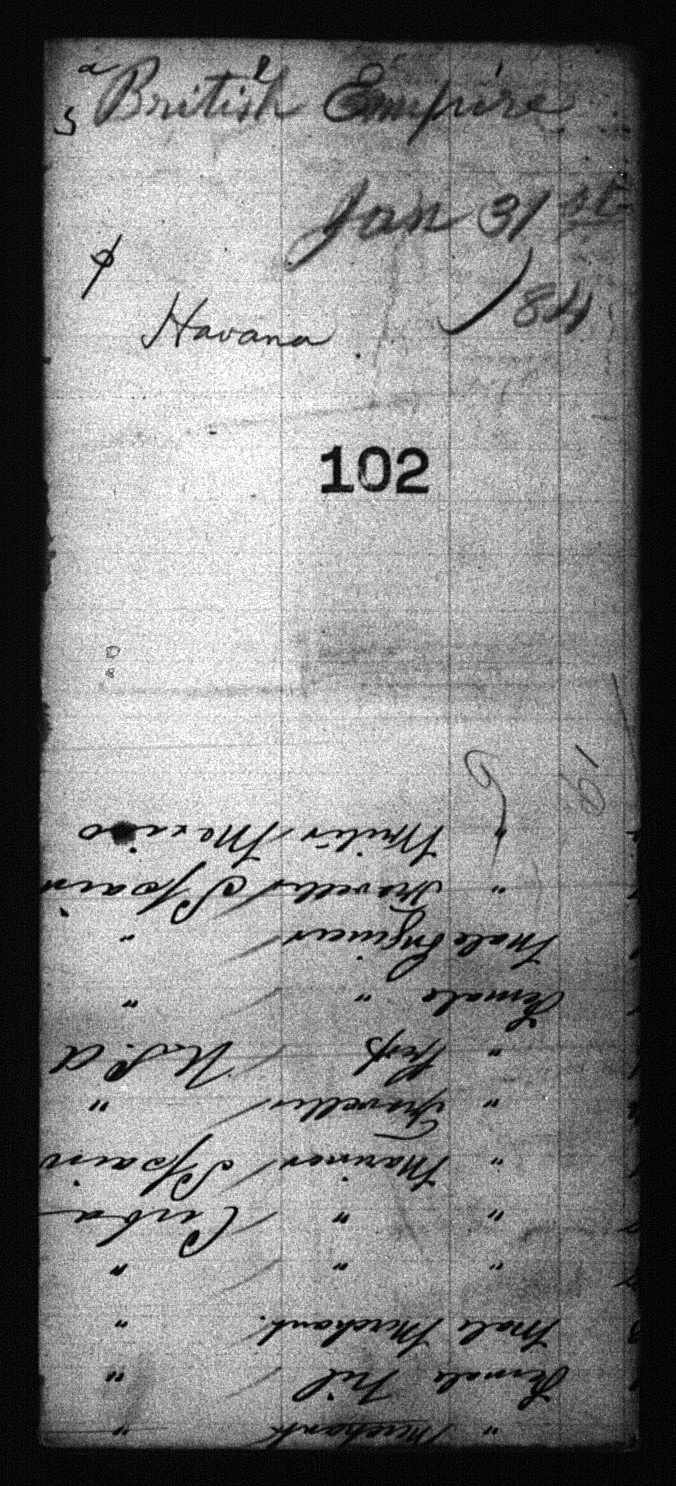 British Empire
Jan 31st
/84
Havana
102
" Merchant "
Female Nil "
Male Merchant "
" " "
" " Cuba
" Mariner Spain
" Traveller "
" U.S.A
Female " "
Male Engineer "
" Traveller Spain
" Mexico